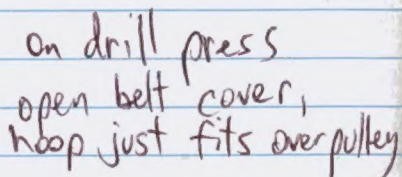 on drill press
open belt cover,
hoop just fits over pulley